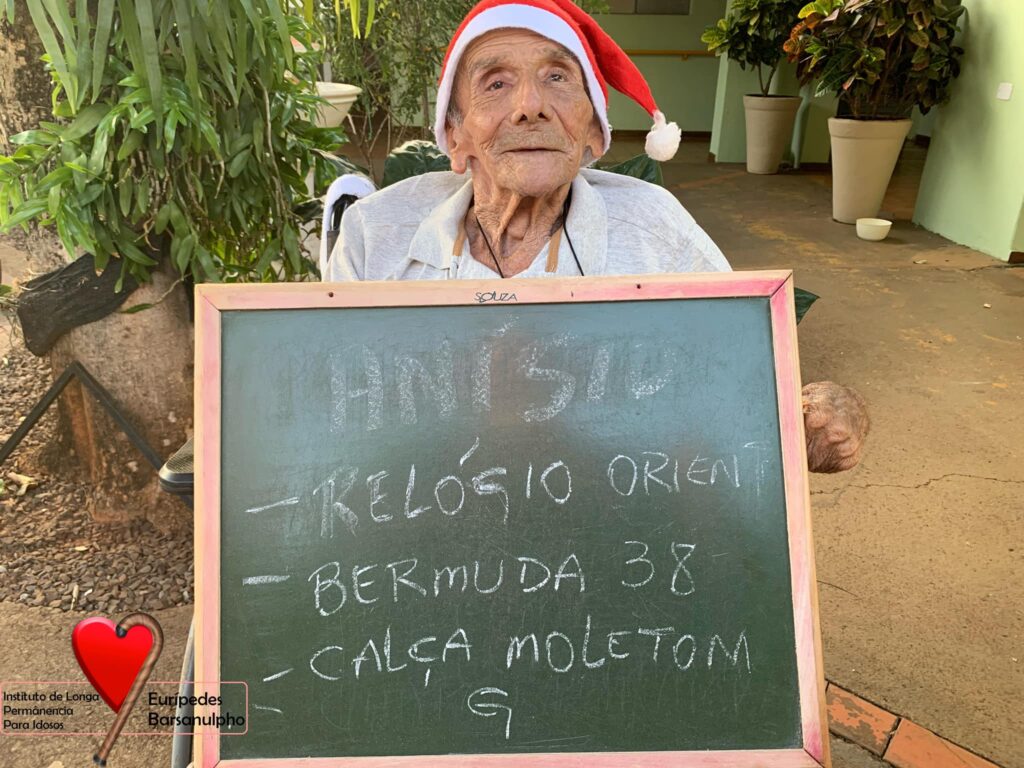 SOUZA
ANÍSIO
- RELÓGIO ORIENT
- BERMUDA 38
- CALÇA MOLETOM
- G
Instituto de Longa
Permânencia
Para Idosos
Eurípedes
Barsanulpho